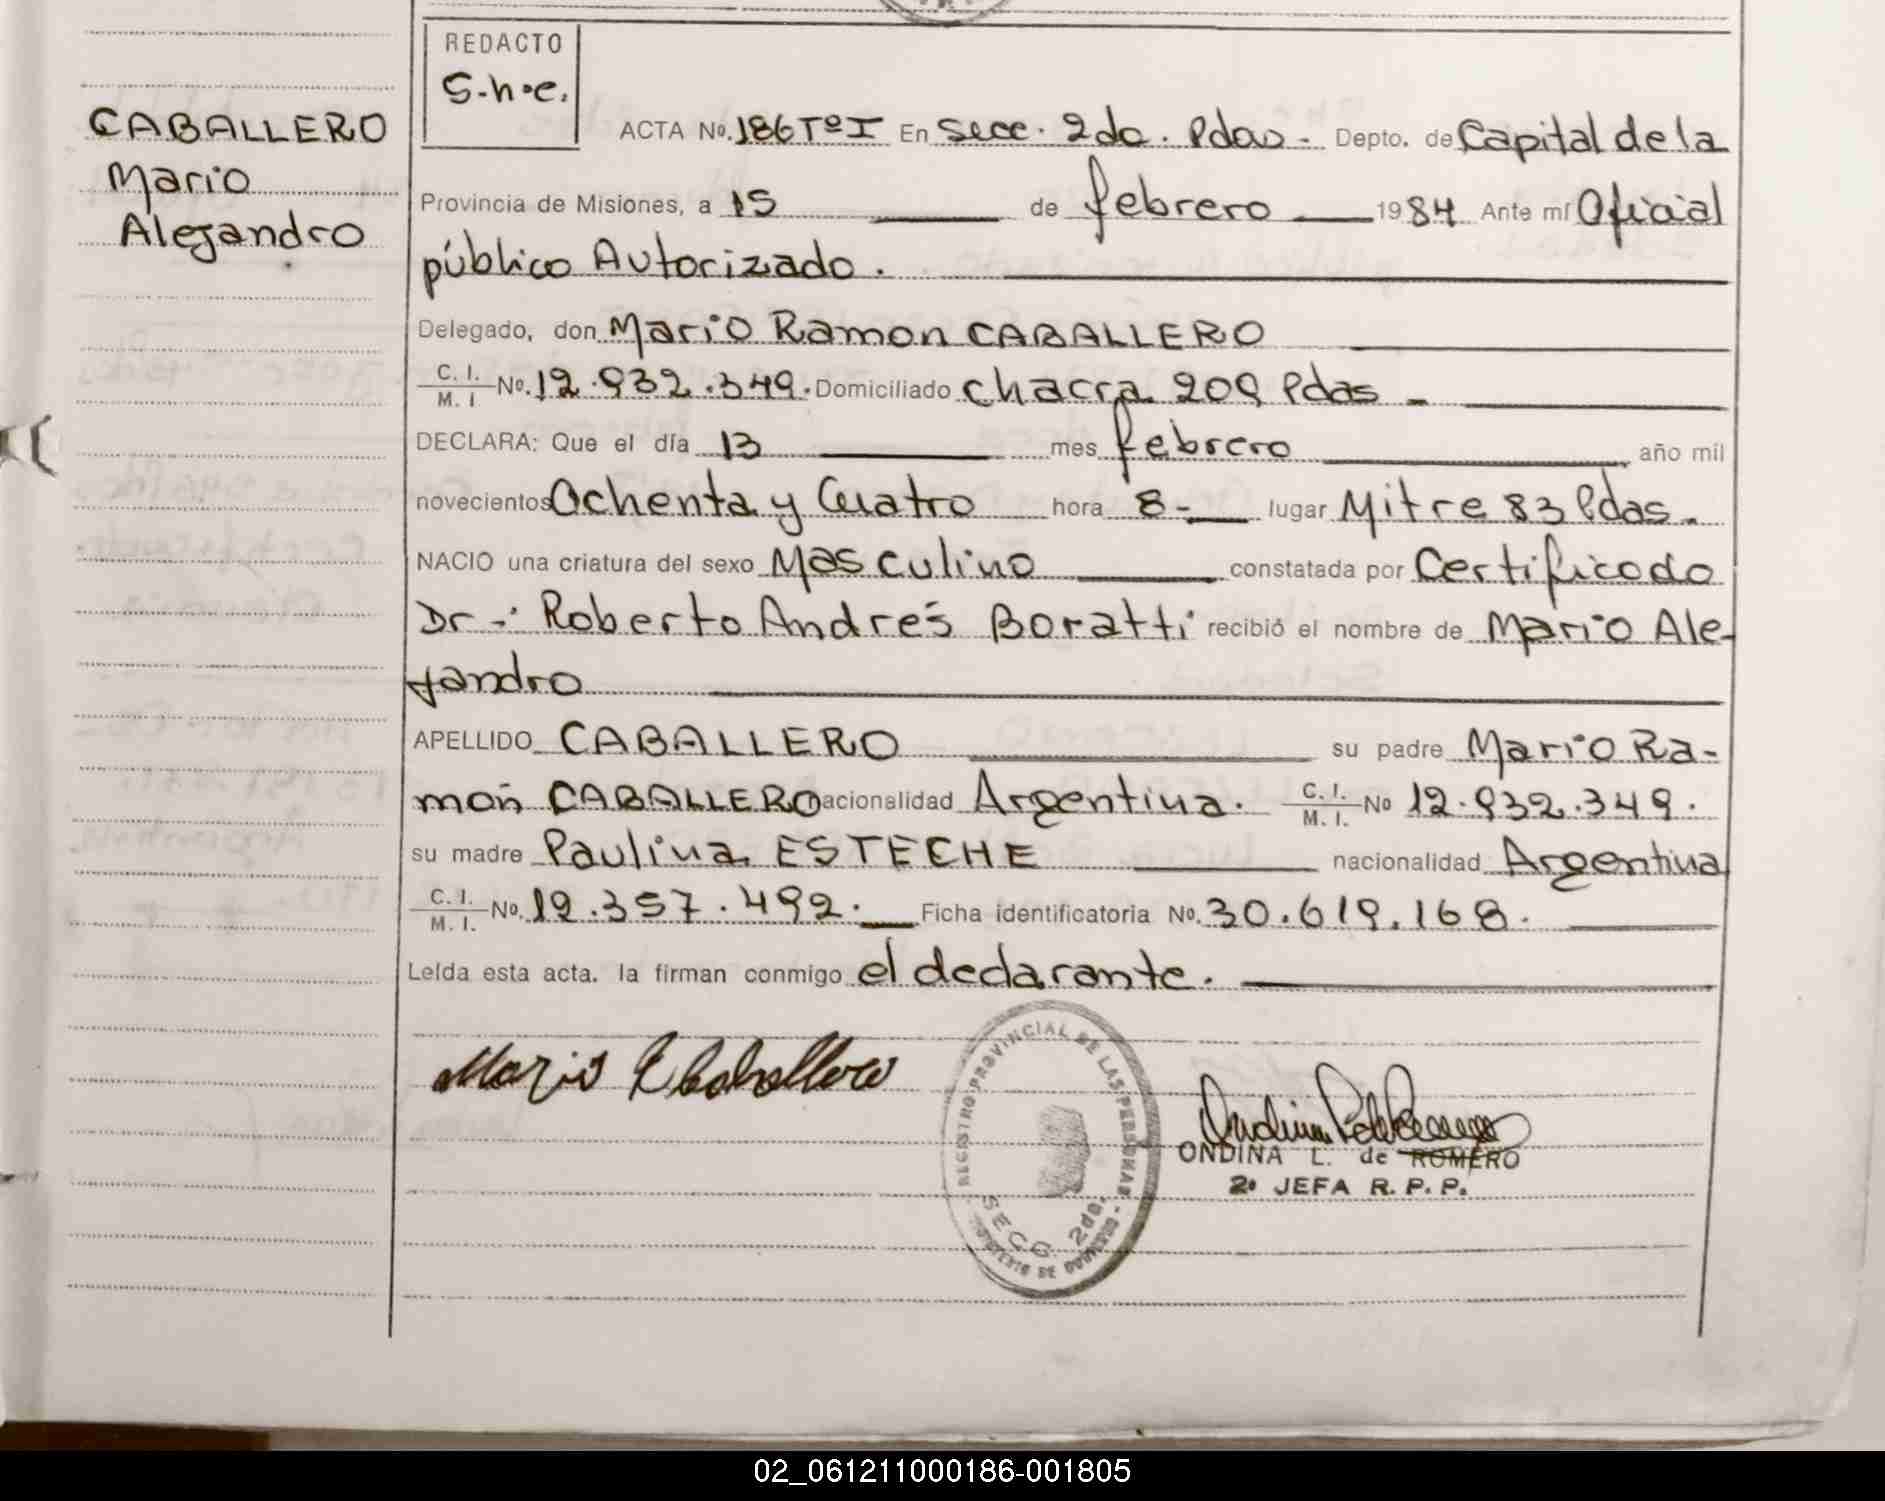 REDACTO
S.h.e.
CABALLERO
Mario
Alejandro
ACTA No. 186 Tº I En Secc. 2da. Pdas - Depto. de Capital de la
Provincia de Misiones, a 15 de febrero 1984 Ante mí Oficial
público Autorizado.
Delegado, don Mario Ramon CABALLERO
C. I. / M. I No. 12.932.349. Domiciliado chacra 209 Pdas -
DECLARA: Que el día 13 mes febrero año mil
novecientos Ochenta y Cuatro hora 8- lugar Mitre 83 Pdas.
NACIO una criatura del sexo Masculino constatada por Certificado
Dr.: Roberto Andrés Boratti recibió el nombre de Mario Ale-
jandro
APELLIDO CABALLERO su padre Mario Ra-
món CABALLERO nacionalidad Argentina. C. I. / M. I. No 12.932.349.
su madre Paulina ESTECHE nacionalidad Argentina
C. I. / M. I. No. 12.357.492. Ficha identificatoria No. 30.619.168.
Leída esta acta. la firman conmigo el declarante.
Mario R Caballero
REGISTRO PROVINCIAL DE LAS PERSONAS
SECC. 2da.
MINISTERIO DE GOBIERNO
ONDINA L. de ROMERO
2º JEFA R. P. P.
02_061211000186-001805